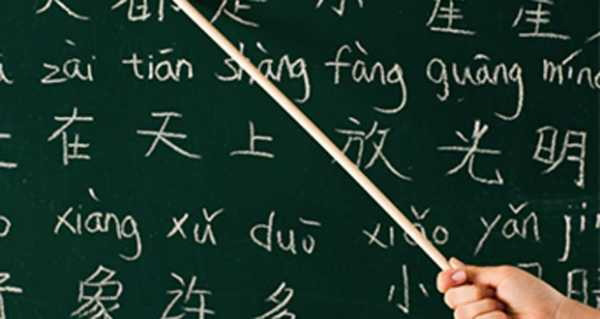 是小星星
zài tiān shàng fàng guāng míng
在天上放光明
xiàng xǔ duō xiǎo yǎn
象许多小